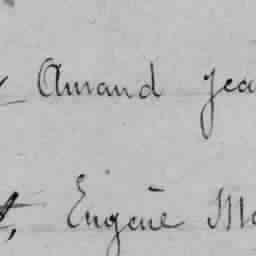 Amand Jea
t, Eugène Ma